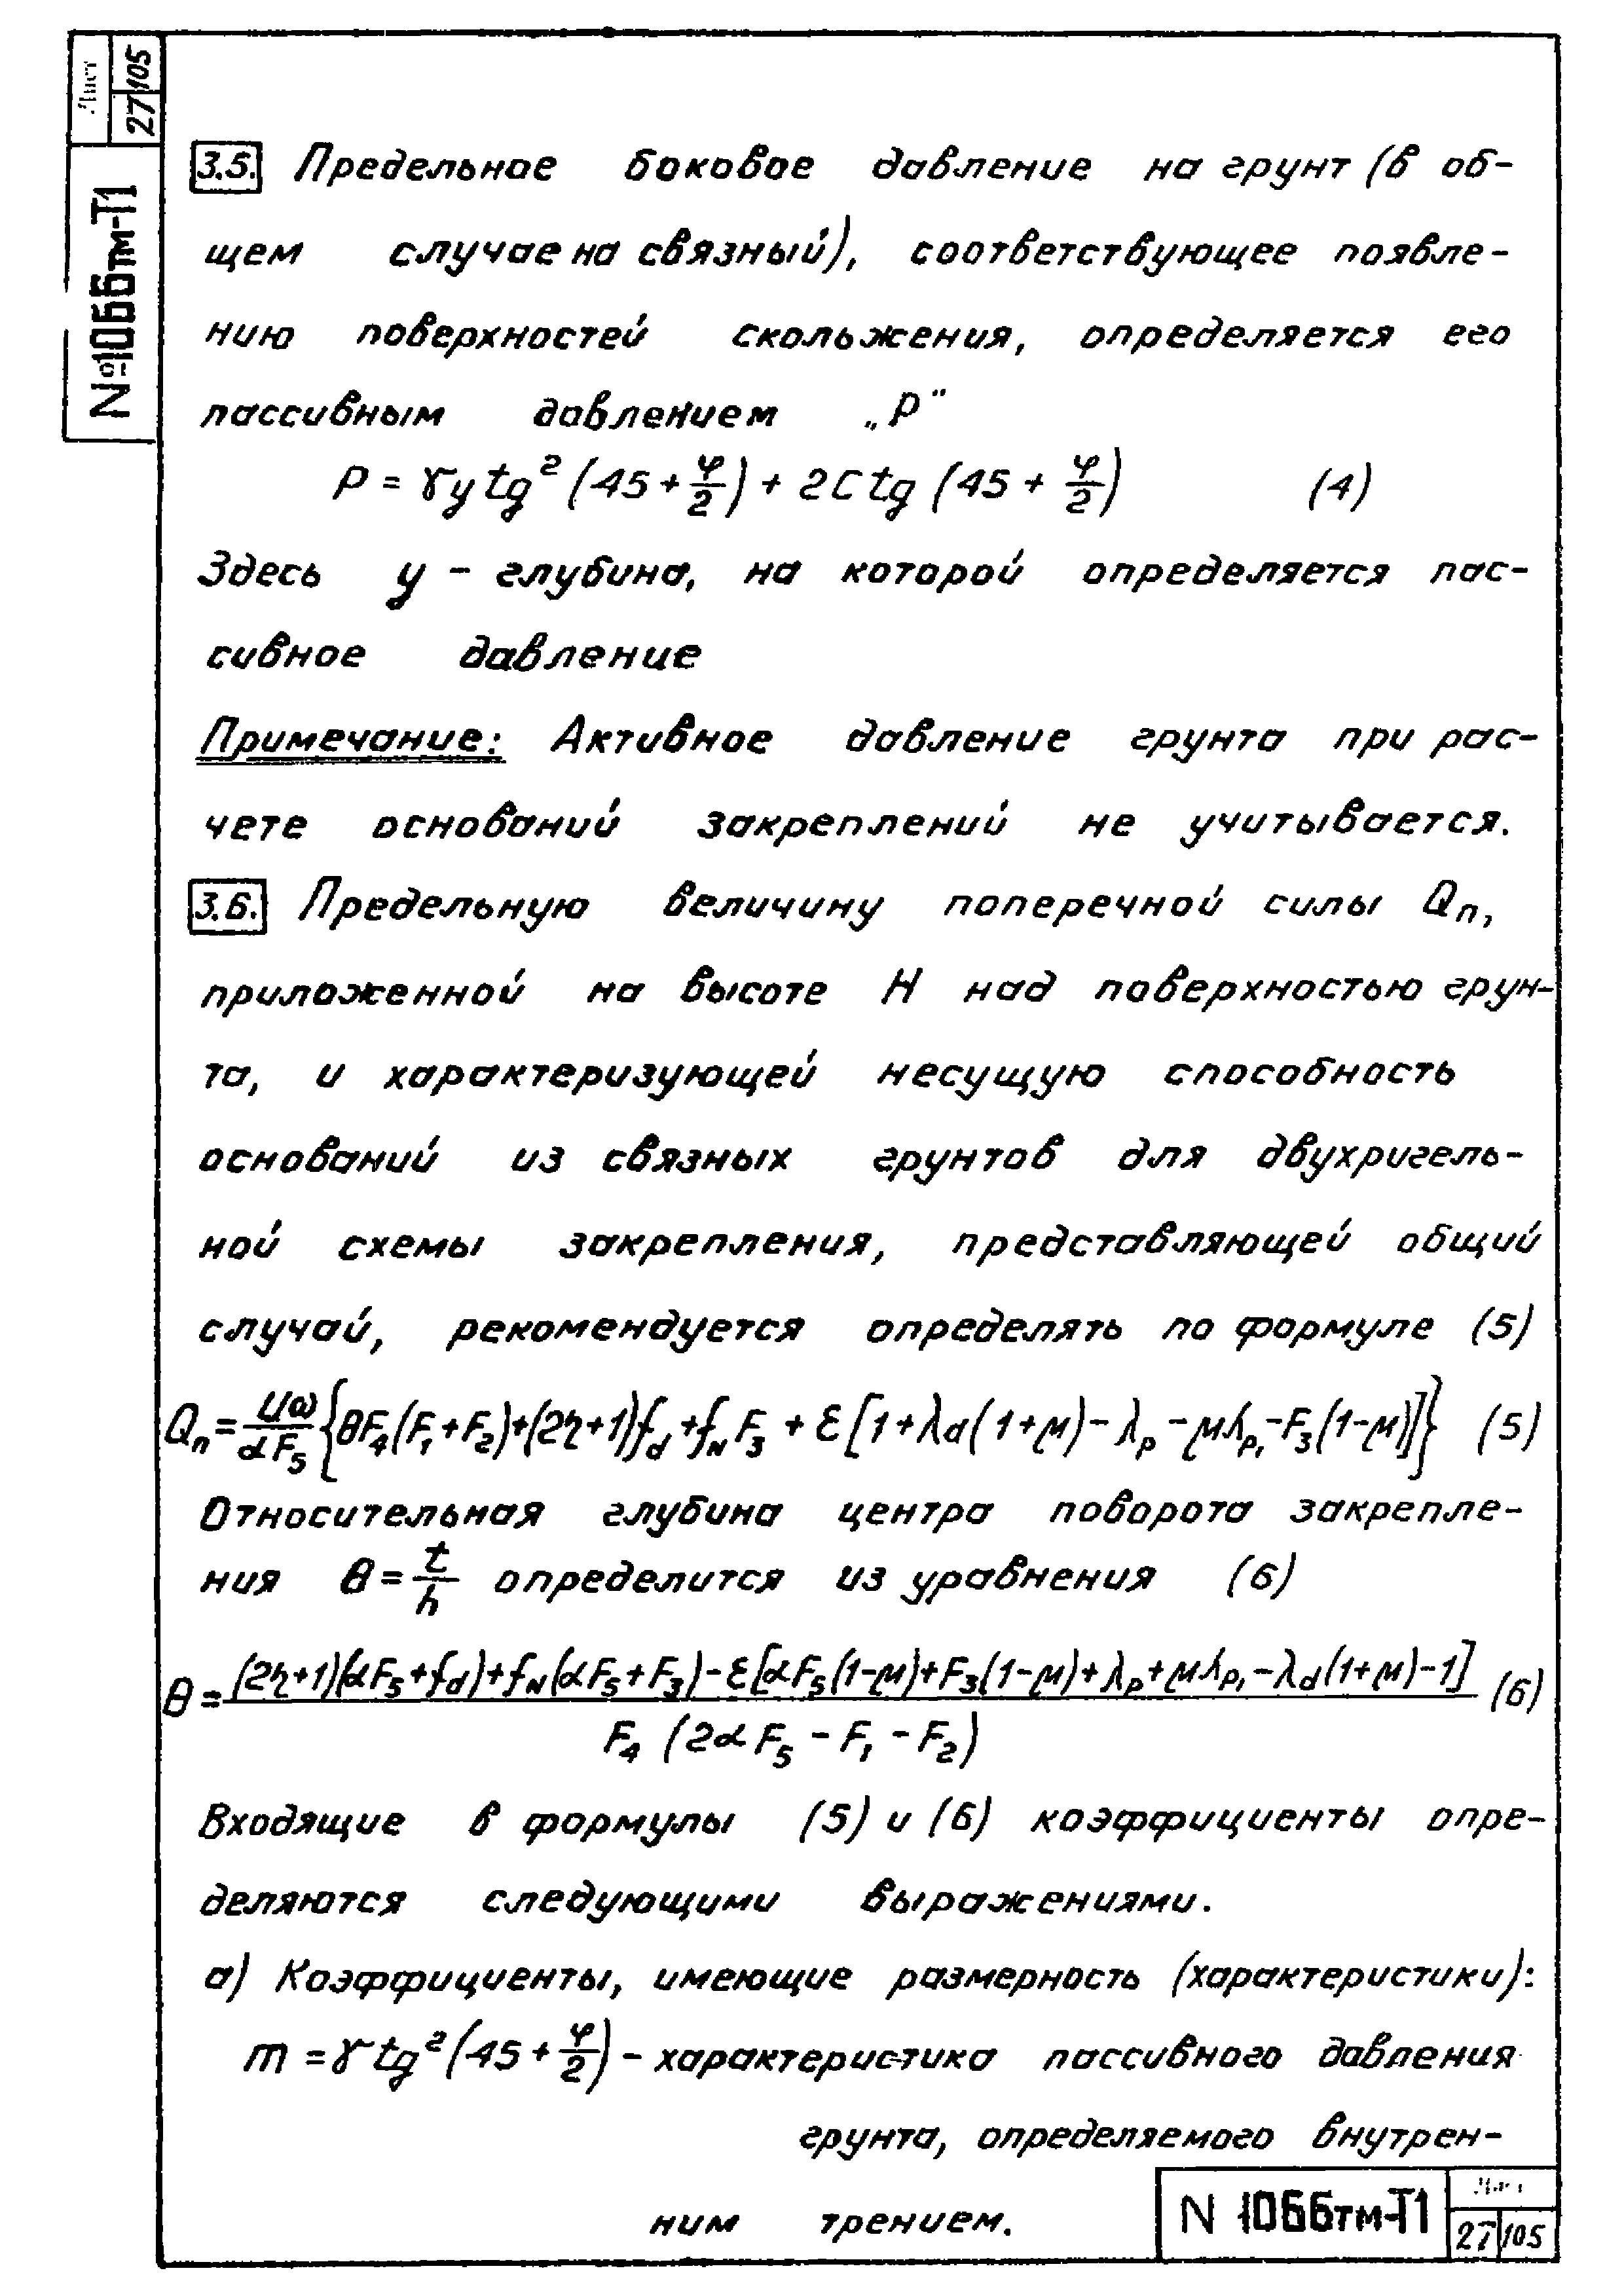 Лист
27 105
№1066тм-Т1
3.5. Предельное боковое давление на грунт (в об-
щем случае на связный), соответствующее появле-
нию поверхностей скольжения, определяется его
пассивным давлением „P“
P = γy tg²(45 + φ/2) + 2C tg (45 + φ/2) (4)
Здесь y - глубина, на которой определяется пас-
сивное давление
Примечание: Активное давление грунта при рас-
чете оснований закреплений не учитывается.
3.6. Предельную величину поперечной силы Qп,
приложенной на высоте H над поверхностью грун-
та, и характеризующей несущую способность
оснований из связных грунтов для двухригель-
ной схемы закрепления, представляющей общий
случай, рекомендуется определять по формуле (5)
Qп = uω/αF₅ {θF₄(F₁+F₂)+(2η+1)f_d+f_N F₃ + ε[1+λd(1+μ)-λp-μλp₁-F₃(1-μ)]} (5)
Относительная глубина центра поворота закрепле-
ния θ = t/h определится из уравнения (6)
θ = (2η+1)(αF₅+f_d)+f_N(αF₅+F₃)-ε[αF₅(1-μ)+F₃(1-μ)+λp+μλp₁-λd(1+μ)-1] (6)
F₄ (2αF₅ - F₁ - F₂)
Входящие в формулы (5) и (6) коэффициенты опре-
деляются следующими выражениями.
а) Коэффициенты, имеющие размерность (характеристики):
m = γ tg²(45 + φ/2) - характеристика пассивного давления
грунта, определяемого внутрен-
ним трением.
N 1066тм-Т1
Лист
27 105